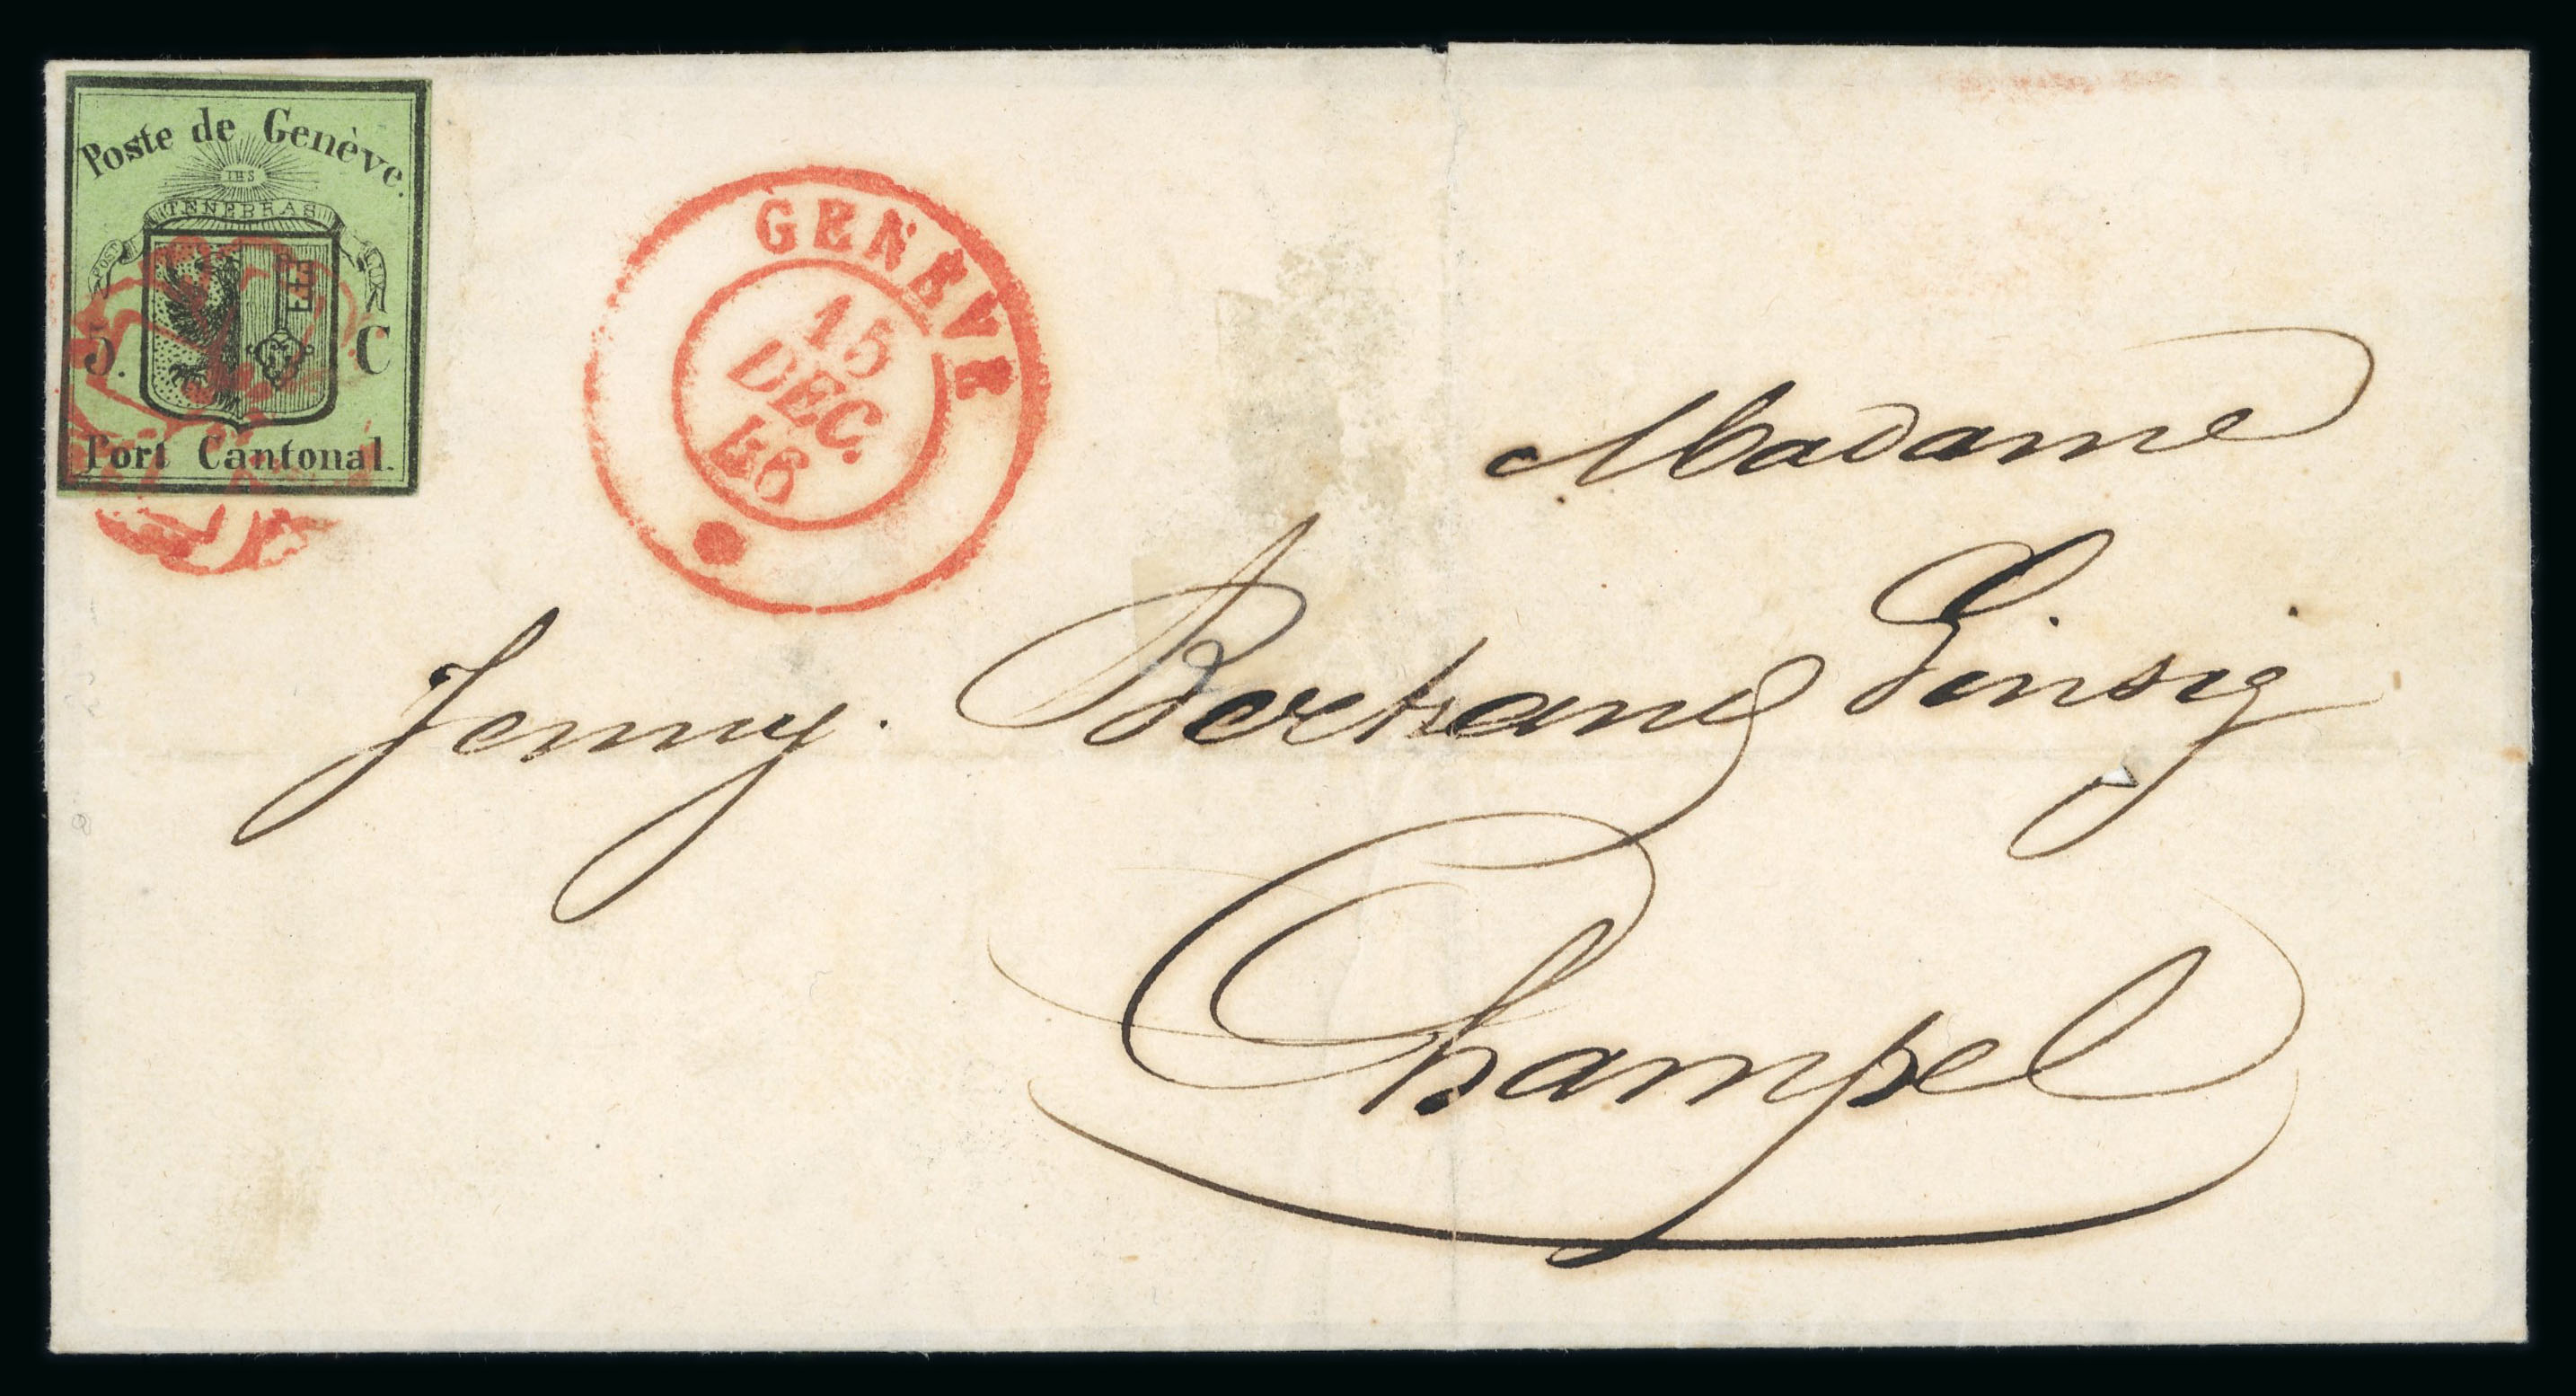 Poste de Genève.
IHS
POST TENEBRAS LUX
5. C
Port Cantonal.
GENEVE
15
DEC.
46
Madame
Jenny. Bertrand Sinsig
Champel